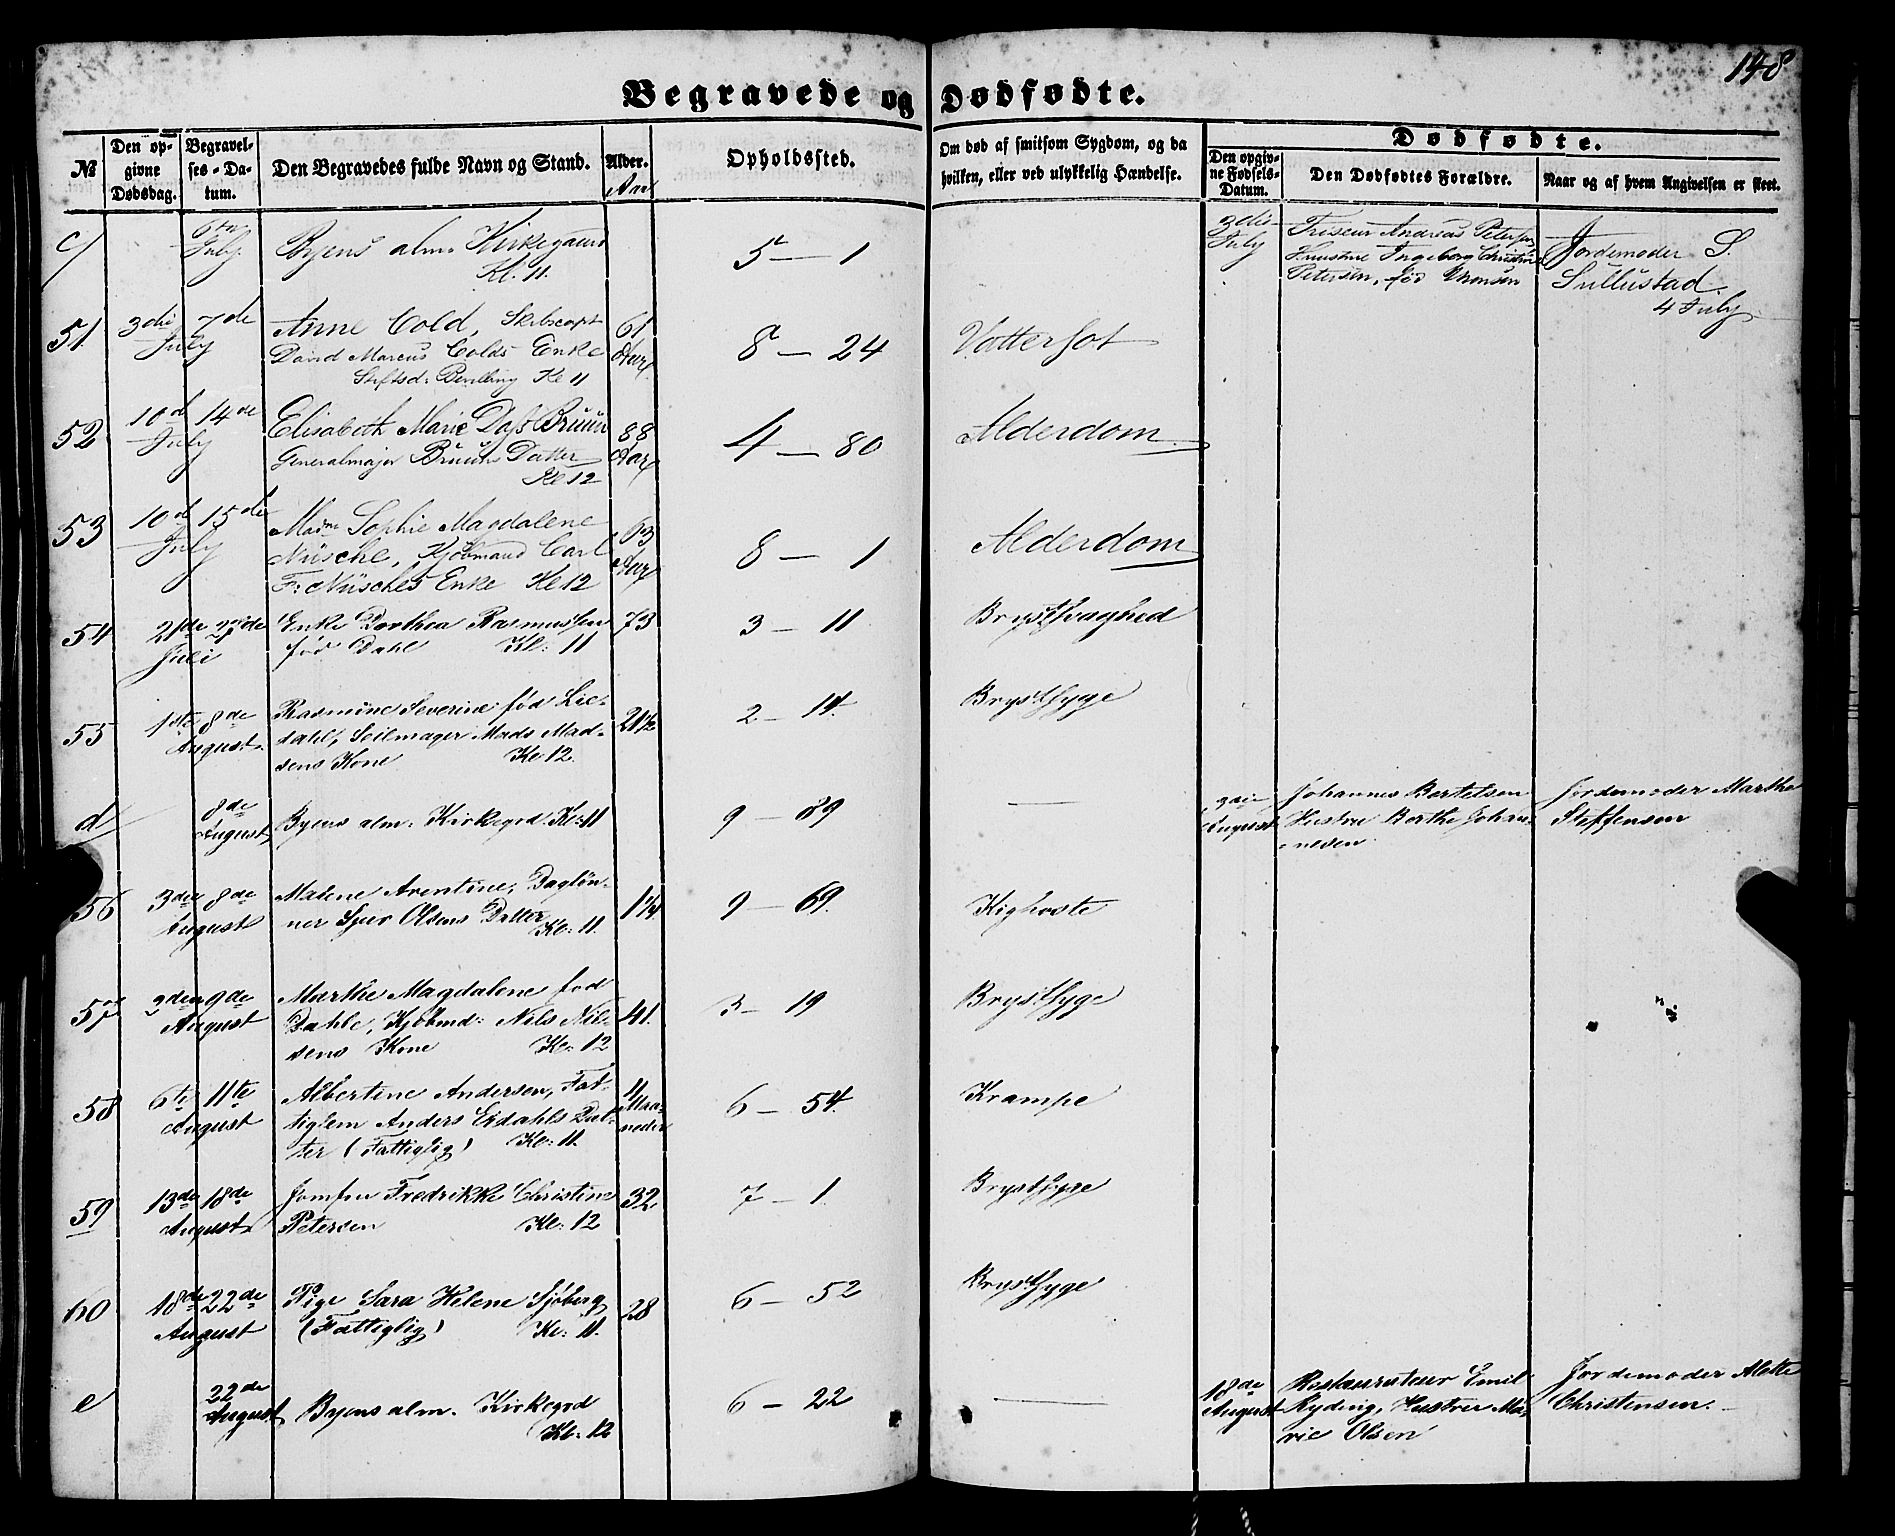 148
Begravede og Dødfødte.
№
Den opgivne Dødsdag.
Begravelses-Datum.
Den Begravedes fulde Navn og Stand.
Alder.
Opholdssted.
Om død af smitsom Sygdom, og da
hvilken, eller ved ulykkelig Hændelse.
Dødfødte.
Den opgivne Fødsels-Datum.
Den Dødfødtes Forældre.
Naar og af hvem Angivelsen er skeet.
c/ 6te July Byens alm. Kirkegaard Kl. 11. 5 — 1
3die July Friseur Andreas Petersen
Hustrue Ingeborg Christine
Petersen, fød
Jordemoder S.
Sullustad
4 July
51. 3die 7de July Anne Cold, Skibscapt
David Marcus Colds Enke
Kl 11
61 Aar 8 — 24
52 10d 14de July Elisabeth Marie Dass Bruun
Generalmajor Bruuns Datter
Kl 12
88 Aar 4 — 80 Alderdom
53 10d 15de July Madm Sophie Magdalene
Nüsche, Kjøbmand Carl
F: Nüsches Enke Kl 12
63 Aar 8 — 1 Alderdom
54 21de 27de Juli Enke Dorthea Rasmussen
fød Dahl Kl: 11
73 3 — 11 Brystsvaghed
55 1ste 8de August Rasmine Severine fød Lie-
dahl, Seilmager Mads Mad-
sens Kone Kl 12.
21½ 2 — 14. Brystsyge
d/ 8de August Byens alm. Kirkegrd. Kl: 11 9 — 89 —
3die August Johannes Bertelsen
Hustru Berthe Johan-
nesen
Jordemoder Marthe
Steffensen
56 3die 8de August Malene Arentine, Dagløn-
ner Sjur Olsens Datter
Kl: 11.
1¼ 9 — 69. Kighoste
57 3den 9de August Marthe Magdalene fød
Dahle, Kjøbmd: Nils Nil-
sens Kone Kl: 12
41. 3 — 19 Brystsyge
58 6te 11te August Albertine Andersen, Fat-
tiglem Anders Eidahls Dat-
ter (Fattiglig) Kl: 11.
11 Maaneder 6 — 54. Krampe
59 13de 18de August Jomfru Fredrikke Christine
Petersen Kl: 12
32 7 — 1. Brystsyge
60 18de 22de August Pige Sara Helene Sjøberg
(Fattiglig) Kl: 11.
28 6 — 52 Brystsyge
e 22de August Byens alm. Kirkegrd
Kl: 12
6 — 22 —
18de August Restaurateur Emil
Ryding, Hustrue Ma-
rie Olsen
Jordemoder Mette
Christensen.